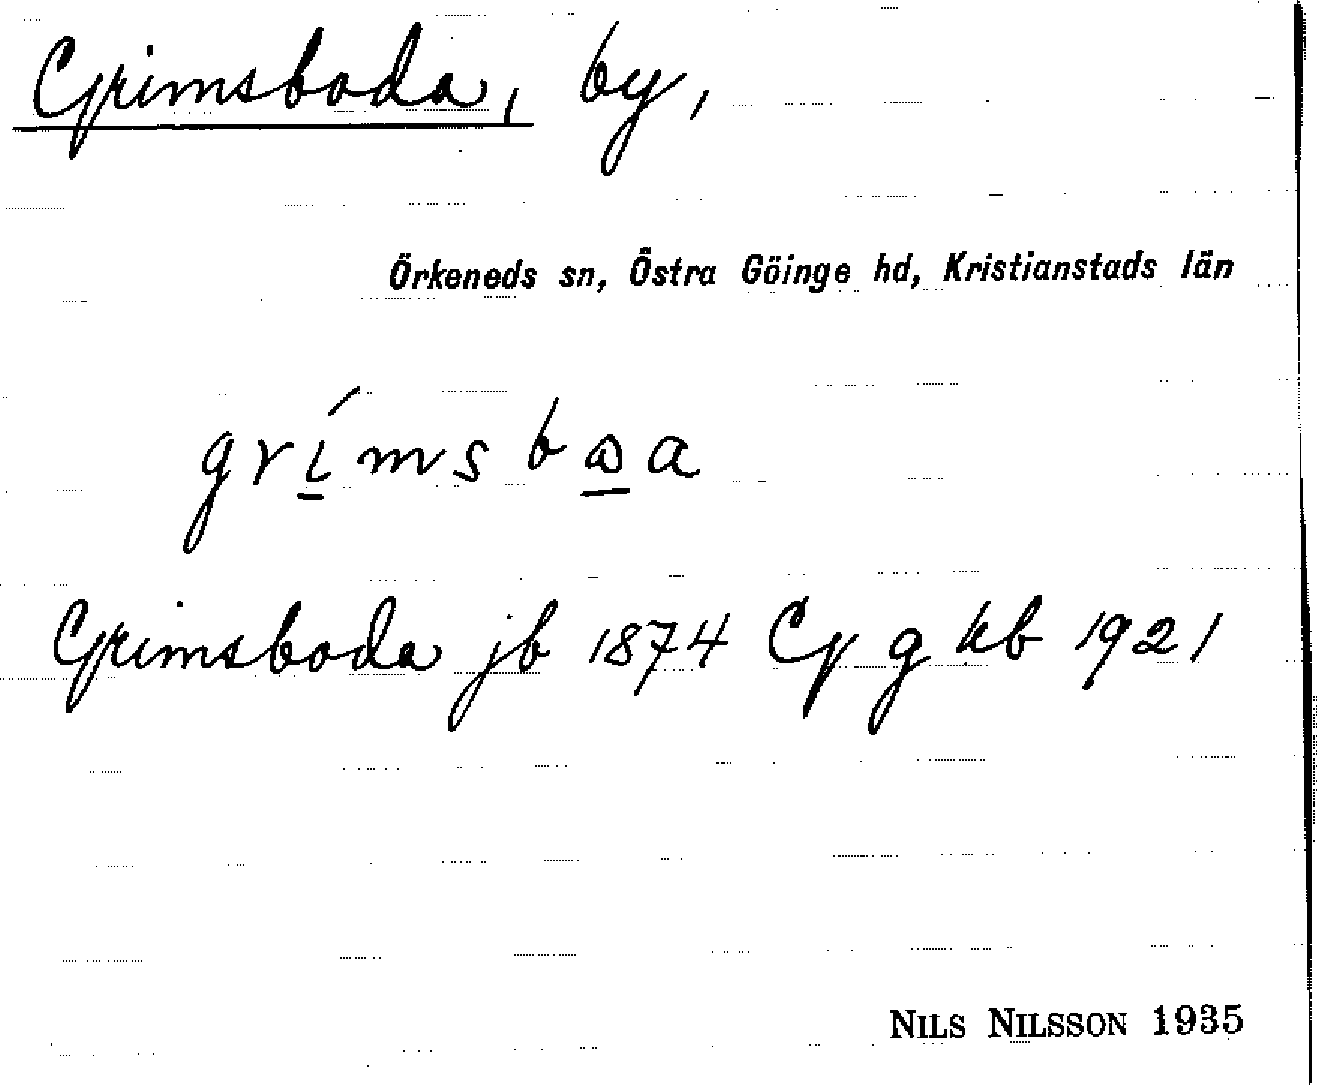 Grimsboda, by,
Örkeneds sn, Östra Göinge hd, Kristianstads län
Grimsboda jb 1874 G g kb 1921
NILS NILSSON 1935